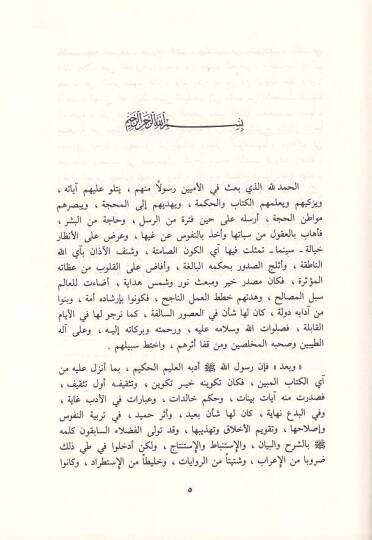 بسم الله الرحمن الرحيم
الحمد لله الذي بعث في الأميين رسولاً منهم ، يتلو عليهم آياته ،
ويزكيهم ويعلمهم الكتاب والحكمة ، ويهديهم إلى المحجة ، ويبصرهم
مواطن الحجة ، أرسله على حين فترة من الرسل ، وحاجة من البشر ،
فأهاب بالعقول من سباتها وأخذ بالنفوس عن غيها ، وعرض على الأنظار
خيالة - سينما - تمثلت فيها آي الكون الصامتة ، وشنف الآذان بآي الله
الناطقة ، وأثلج الصدور بحكمه البالغة ، وأفاض على القلوب من عظاته
المؤثرة ، فكان مصدر خير ومبعث نور وشمس هداية ، أضاءت للعالم
سبل المصالح ، وهدتهم خطط العمل الناجح ، فكونوا بإرشاده أمة ، وبنوا
من آدابه دولة ، كان لها شأن في العصور السالفة ، كما نرجو لها في الأيام
القابلة ، فصلوات الله وسلامه عليه ، ورحمته وبركاته إليه ، وعلى آله
الطيبين وصحبه المخلصين ومن قفا أثرهم ، واختط سبيلهم .
« وبعد » فإن رسول الله ﷺ أدبه العليم الحكيم ، بما أنزل عليه من
آي الكتاب المبين ، فكان تكوينه خير تكوين ، وتثقيفه أول تثقيف ،
فصدرت منه آيات بينات ، وحكم خالدات ، وعبارات في الأدب غاية ،
وفي البدع نهاية ، كان لها شأن بعيد ، وأثر حميد ، في تربية النفوس
وإصلاحها ، وتقويم الأخلاق وتهذيبها ، وقد تولى الفضلاء السابقون كلمه
ﷺ بالشرح والبيان ، والإستنباط والإستنتاج ، ولكن أدخلوا في طي ذلك
ضروبا من الإعراب ، وشتيتاً من الروايات ، وخليطاً من الإستطراد ، وكانوا
٥